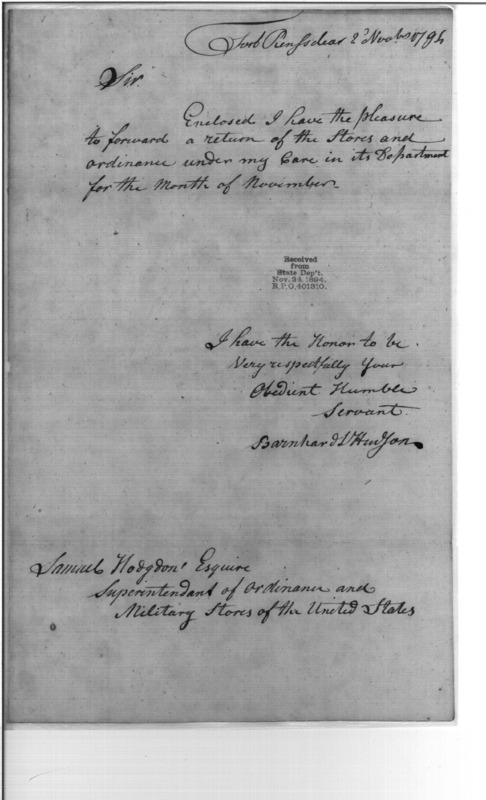 Fort Rensselear 2d Novbr 1794
Sir
Enclosed I have the pleasure
to forward a return of the Stores and
ordinance under my Care in its Department
for the Month of November
Received
from
State Dep't.
Nov. 24, 1894.
R.P.O. 401310.
I have the Honor to be
Very respectfully Your
Obedient Humble
Servant
Barnhard Hudson
Samuel Hodgdon Esquire
Superintendant of ordinance and
Military Stores of the United States